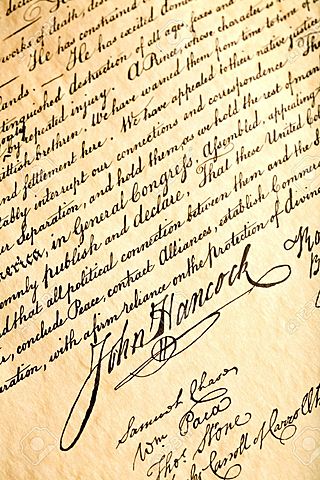 works of death, desolation
He has constrained
He has excited domes
lands: — tinguished destruction of all ages
by repeated injury. A Prince, whose character is
Brittish brethren. We have warned them from time to time of
and settlement here. We have appealed to their native justice
tably interrupt our connections and correspondence. Th
er Separation, and hold them, as we hold the rest of man
merica, in General Congress, Assembled, appealing
emnly publish and declare, That these United Col
d that all political connection between them and the S
r, conclude Peace, contract Alliances, establish Commer
aration, with a firm reliance on the protection of divin
John Hancock
Samuel Chase
Wm Paca
Thos Stone
Carroll of Carrollt